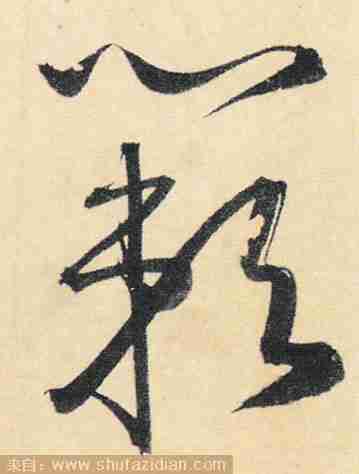 籟
来自：www.shufazidian.com